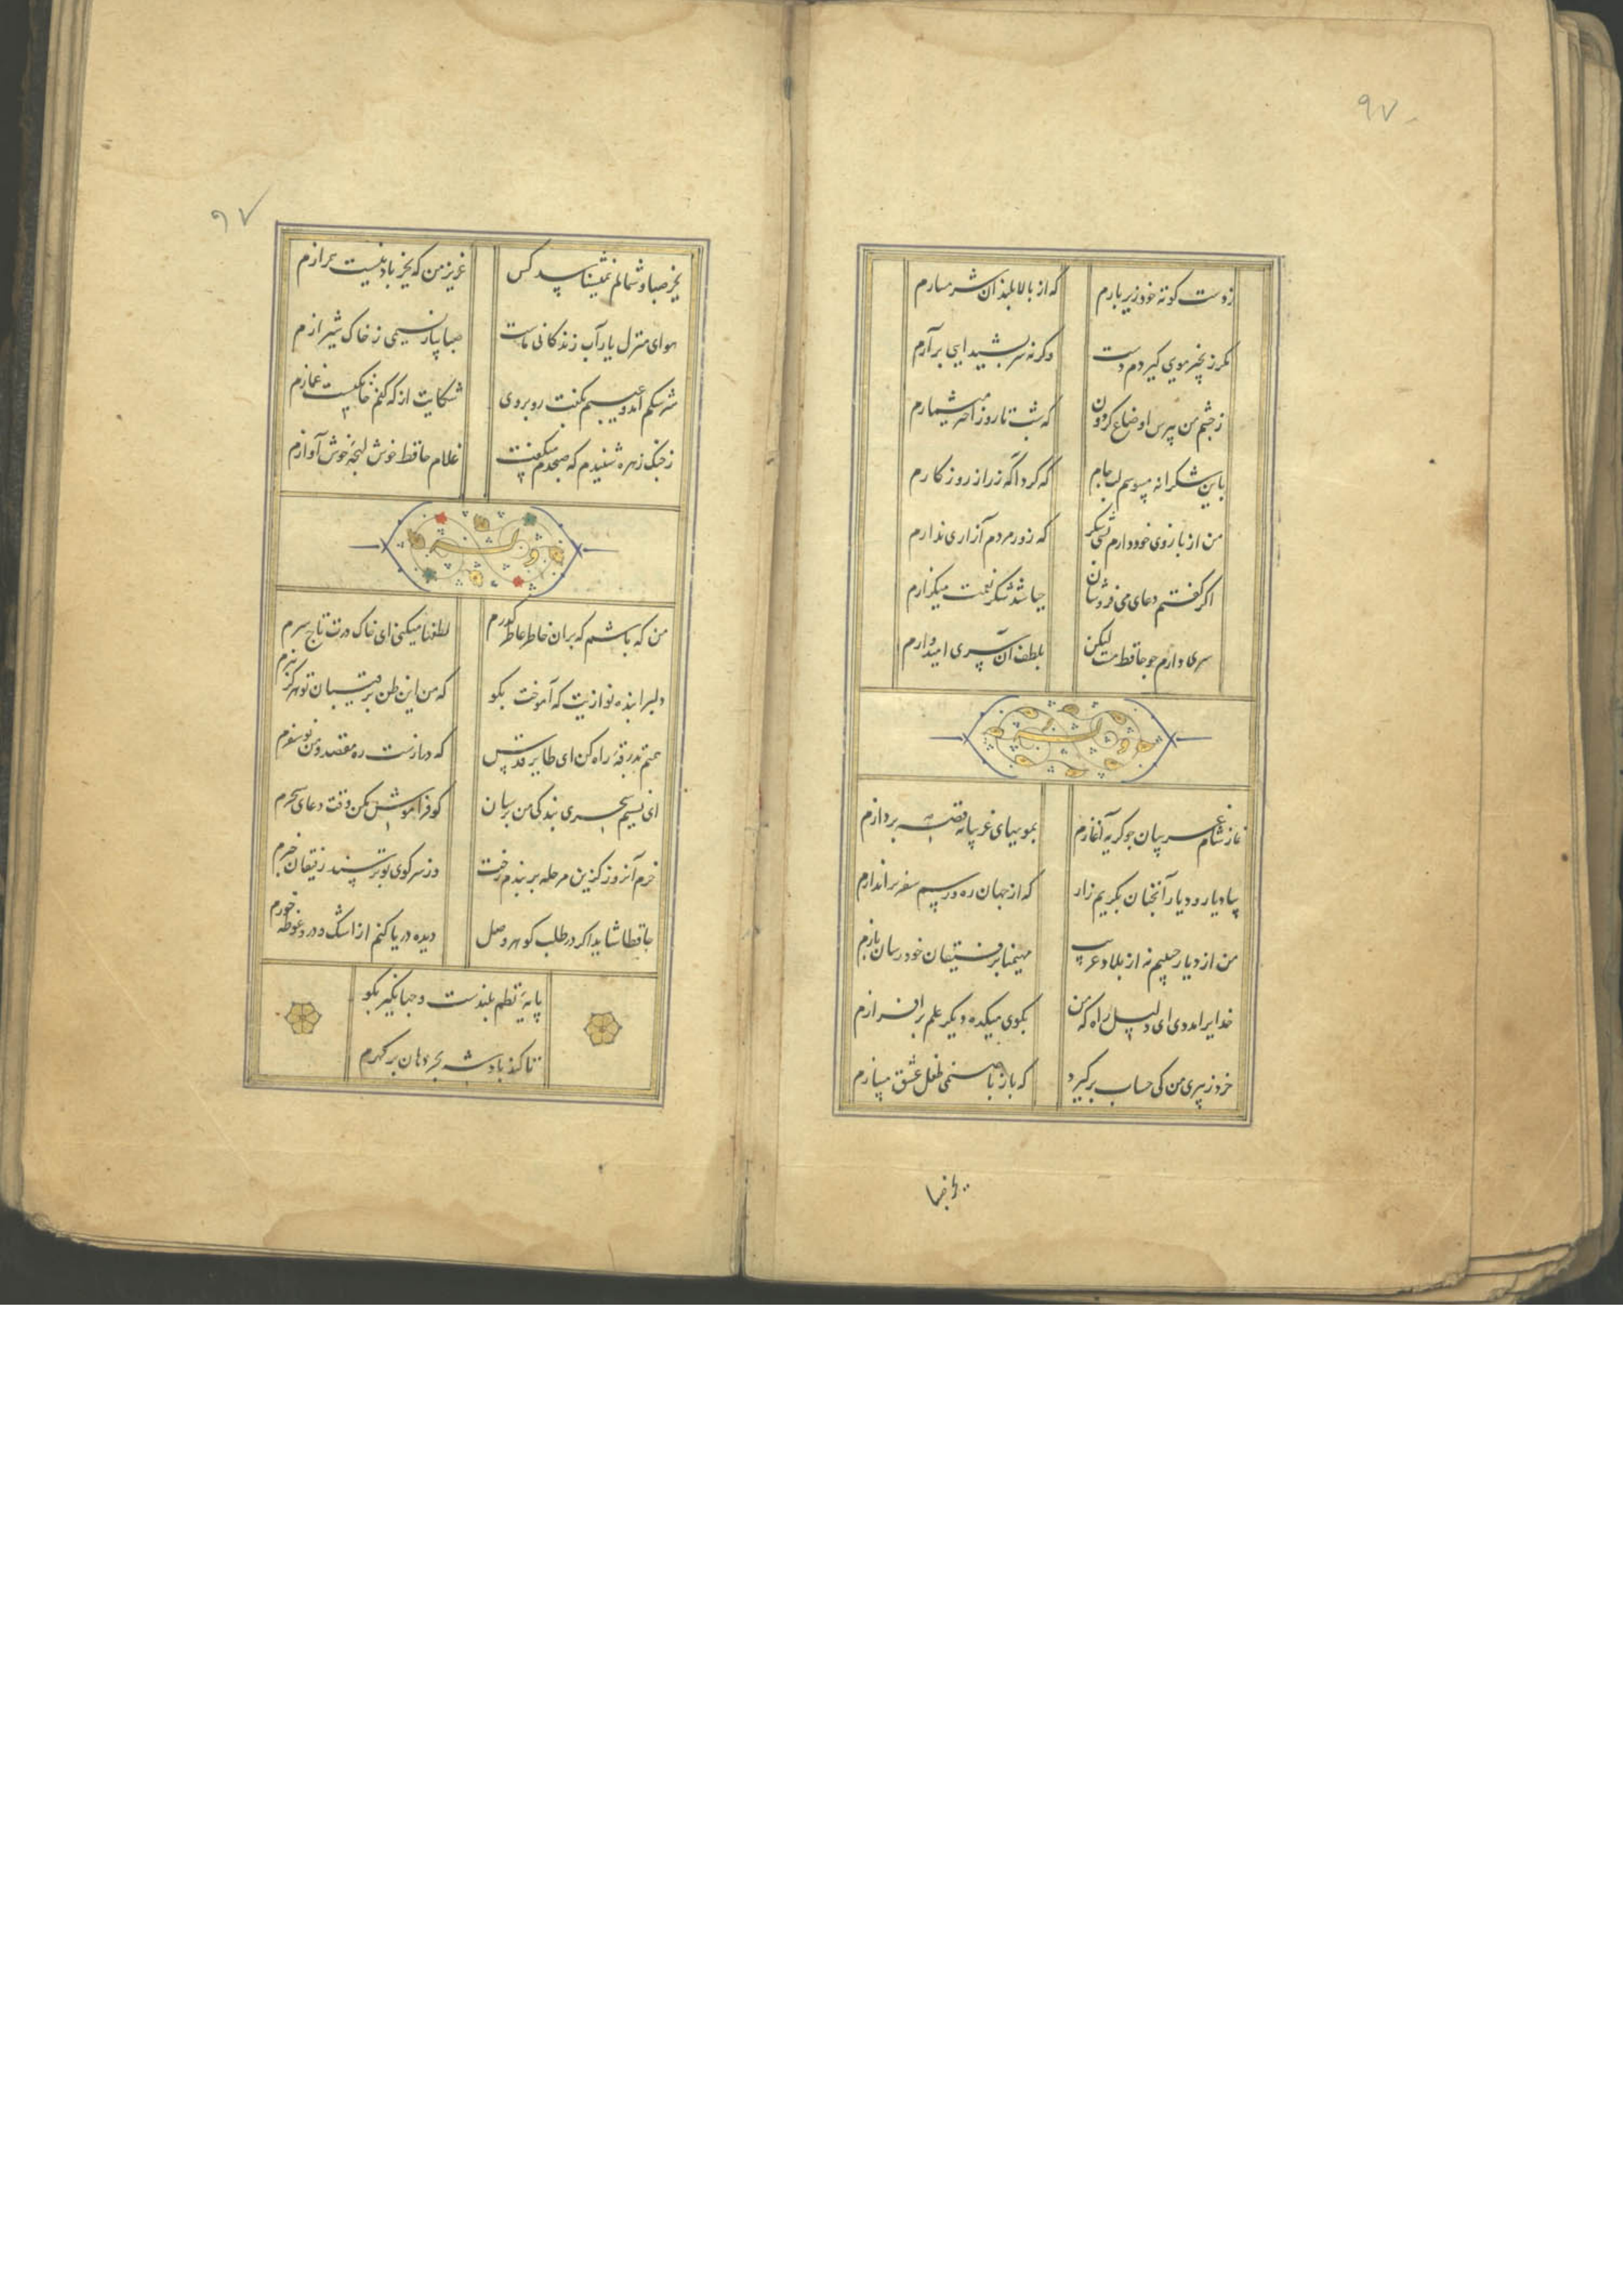 ۹۷
ز دست کوته خود زیر بارم که از بالا بلندان شرمسارم
مکر زنجیر مویی کیردم دست وکرنه سر بشیدایی برآرم
ز چشم من بپرس اوضاع کردون که شب تا روز اختر میشمارم
باین شکرانه میبوسم لب جام که کرد آکه ز راز روزکارم
من از بازوی خود دارم بسی شکر که زور مردم آزاری ندارم
اکر کفتم دعای می فروشان چباشد شکر نعمت میکزارم
سری دارم چو حافظ مست لیکن بلطف آن سری امیدوارم
وله
نماز شام غریبان چو کریه آغازم بمویهای غریبانه قصه پردازم
بیاد یار و دیار آنچنان بکریم زار که از جهان ره و رسم سفر براندازم
من از دیار حبیبم نه از بلاد غریب مهیمنا برفیقان خود رسان بازم
خدایرا مددی ای دلیل راه که من بکوی میکده دیکر علم برافرازم
خرد ز پیری من کی حساب برکیرد که باز با صنمی طفل عشق میبازم
بجز صبا
۹۷
بجز صبا و شمالم نمیشناسد کس عزیز من که بجز باد نیست همرازم
هوای منزل یار آب زندکانی ماست صبا بیار نسیمی ز خاک شیرازم
سرشکم آمد و عیبم بکفت روبروی شکایت از که کنم خانکیست غمازم
ز چنک زهره شنیدم که صبحدم میکفت غلام حافظ خوش لهجهٔ خوش آوازم
وله
من که باشم که بران خاطر عاطر کذرم لطفها میکنی ای خاک درت تاج سرم
دلبرا بنده نوازیت که آموخت بکو که من این ظن برقیبان تو هرکز نبرم
همتم بدرقهٔ راه کن ای طایر قدس که درازست ره مقصد و من نوسفرم
ای نسیم سحری بندکی من برسان کو فراموش مکن وقت دعای سحرم
خرم آنروز کزین مرحله بربندم رخت وز سر کوی تو پرسند رفیقان خبرم
حافظا شاید اکر در طلب کوهر وصل دیده دریا کنم از اشک و درو غوطه خورم
پایهٔ نظم بلندست و جهانکیر بکو
تا کند پادشه بحر دهان پر کهرم